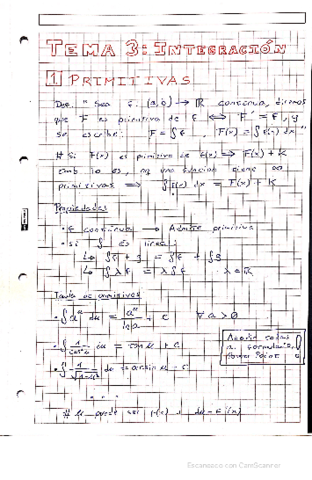 TEMA 3: INTEGRACIÓN
1 PRIMITIVAS
Def. " Sea f: (a,b) → ℝ continua, diremos
que F es primitiva de f ⟺ F' = f, y
se escribe: F = ∫f , F(x) = ∫f(x) dx "
# Si F(x) es primitiva de f(x) ⟹ F(x) + K
tamb lo es, una funcion tiene ∞
primitivas ⟹ ∫f(x) dx = F(x) + K
Propiedades
· f continua → Admite primitiva
· Si ∫ es lineal:
↳ ∫f + g = ∫f + ∫g
↳ ∫λf = λ∫f λ∈ℝ
Tabla de primitivas
· ∫aᵘ du = aᵘ/ln a + c ∀a>0
· ∫ 1/cos²u du = tan u + c
· ∫ 1/√(1-u²) du = arcsin u + c
...
# u puede ser f(x) , du = f'(x)
Escaneado con CamScanner